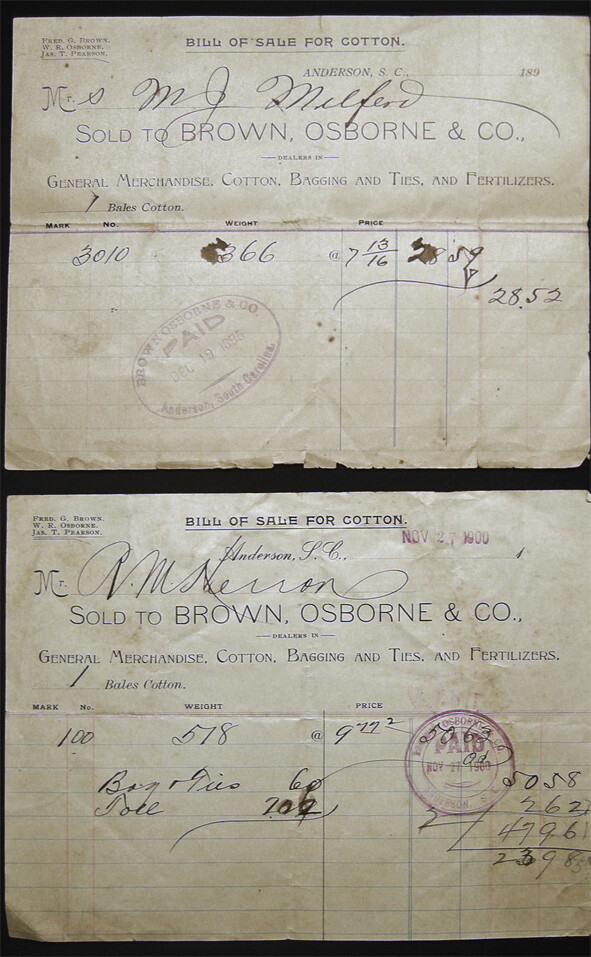 FRED. G. BROWN.
W. R. OSBORNE.
JAS. T. PEARSON.
BILL OF SALE FOR COTTON.
ANDERSON, S. C., 189
Mr.s M J Milford
SOLD TO BROWN, OSBORNE & CO.,
DEALERS IN
GENERAL MERCHANDISE, COTTON, BAGGING AND TIES, AND FERTILIZERS.
1 Bales Cotton.
MARK No. WEIGHT PRICE
3010 366 @ 7 13/16 28 59
28.52
BROWN OSBORNE & CO.
PAID
DEC 19 1895
Anderson, South Carolina.
FRED. G. BROWN.
W. R. OSBORNE.
JAS. T. PEARSON.
BILL OF SALE FOR COTTON.
Anderson, S. C., NOV 27 1900 1
Mr. R. M. Herron
SOLD TO BROWN, OSBORNE & CO.,
DEALERS IN
GENERAL MERCHANDISE, COTTON, BAGGING AND TIES, AND FERTILIZERS.
1 Bales Cotton.
MARK No. WEIGHT PRICE
100 518 @ 9 77 2 50 63
OSBORNE & CO
PAID
NOV 27 1900
ANDERSON, S. C.
50 58
Bag & Ties 60
Toll 2.02 2 62
2 47 96
23 98